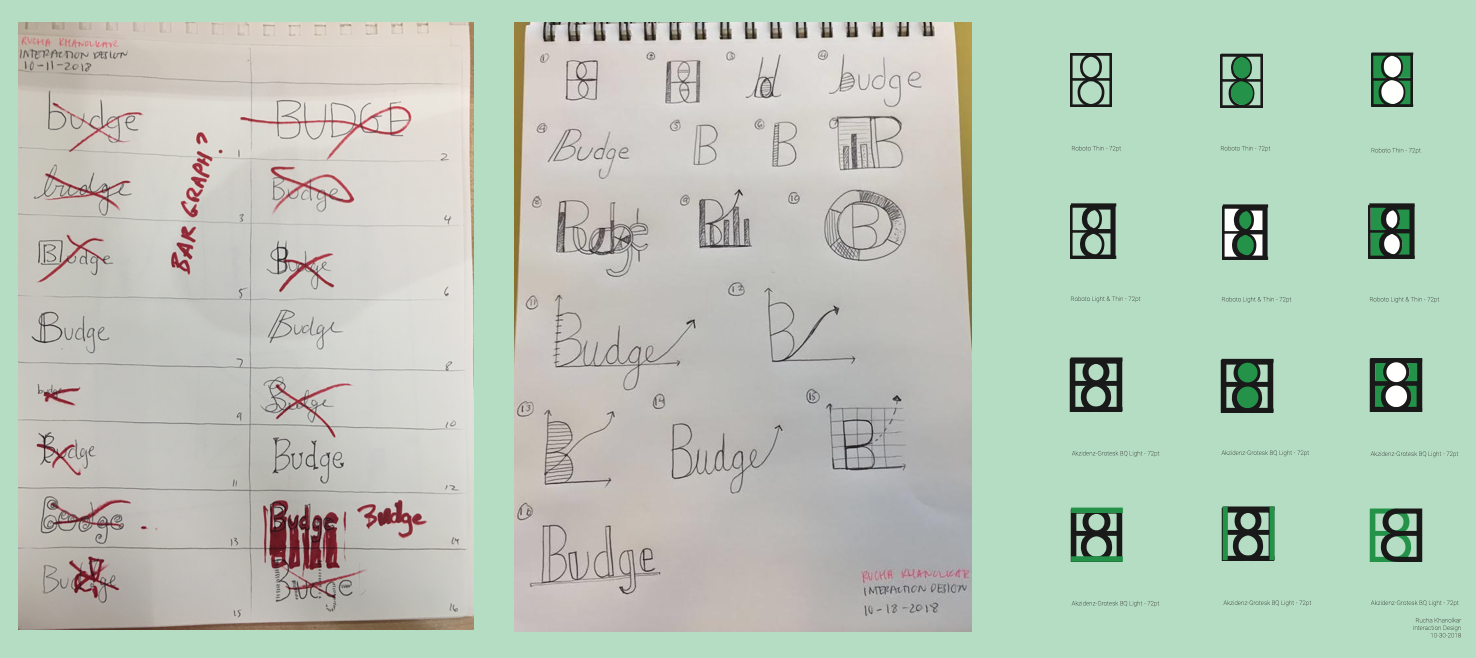 RUCHA KHANOLKAR
INTERACTION DESIGN
10-11-2018
budge
1
BUDGE
2
BAR GRAPH?
budge
3
Budge
4
Budge
5
Budge
6
Budge
7
Budge
8
9
Budge
10
Budge
11
Budge
12
Budge
13
Budge
Budge
14
Budge
15
Budge
16
1
2
3
b
4
budge
4
Budge
5
B
6
B
7
B
8
Budge
9
B
10
B
11
Budge
12
B
13
B
14
Budge
15
B
16
Budge
RUCHA KHANOLKAR
INTERACTION DESIGN
10-18-2018
Roboto Thin - 72pt
Roboto Thin - 72pt
Roboto Thin - 72pt
Roboto Light & Thin - 72pt
Roboto Light & Thin - 72pt
Roboto Light & Thin - 72pt
Akzidenz-Grotesk BQ Light - 72pt
Akzidenz-Grotesk BQ Light - 72pt
Akzidenz-Grotesk BQ Light - 72pt
Akzidenz-Grotesk BQ Light - 72pt
Akzidenz-Grotesk BQ Light - 72pt
Akzidenz-Grotesk BQ Light - 72pt
Rucha Khanolkar
Interaction Design
10-30-2018